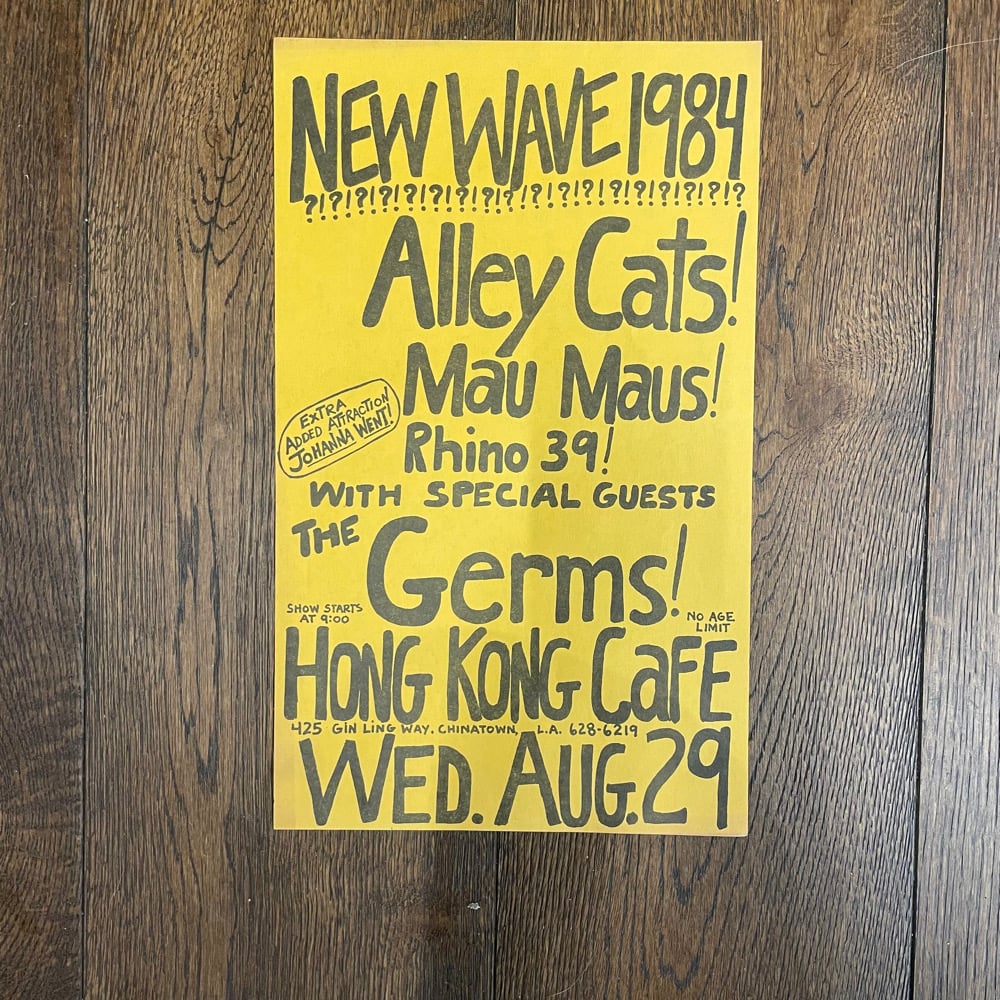 NEW WAVE 1984
?!?!?!?!?!?!?!?!?!?!?!?!?!?!?!?!?!?
Alley Cats!
Mau Maus!
EXTRA
ADDED ATTRACTION
JOHANNA WENT!
Rhino 39!
WITH SPECIAL GUESTS
THE
Germs!
SHOW STARTS
AT 9:00
NO AGE
LIMIT
HONG KONG CaFE
425 GIN LING WAY. CHINATOWN, L.A. 628-6219
WED. AUG. 29